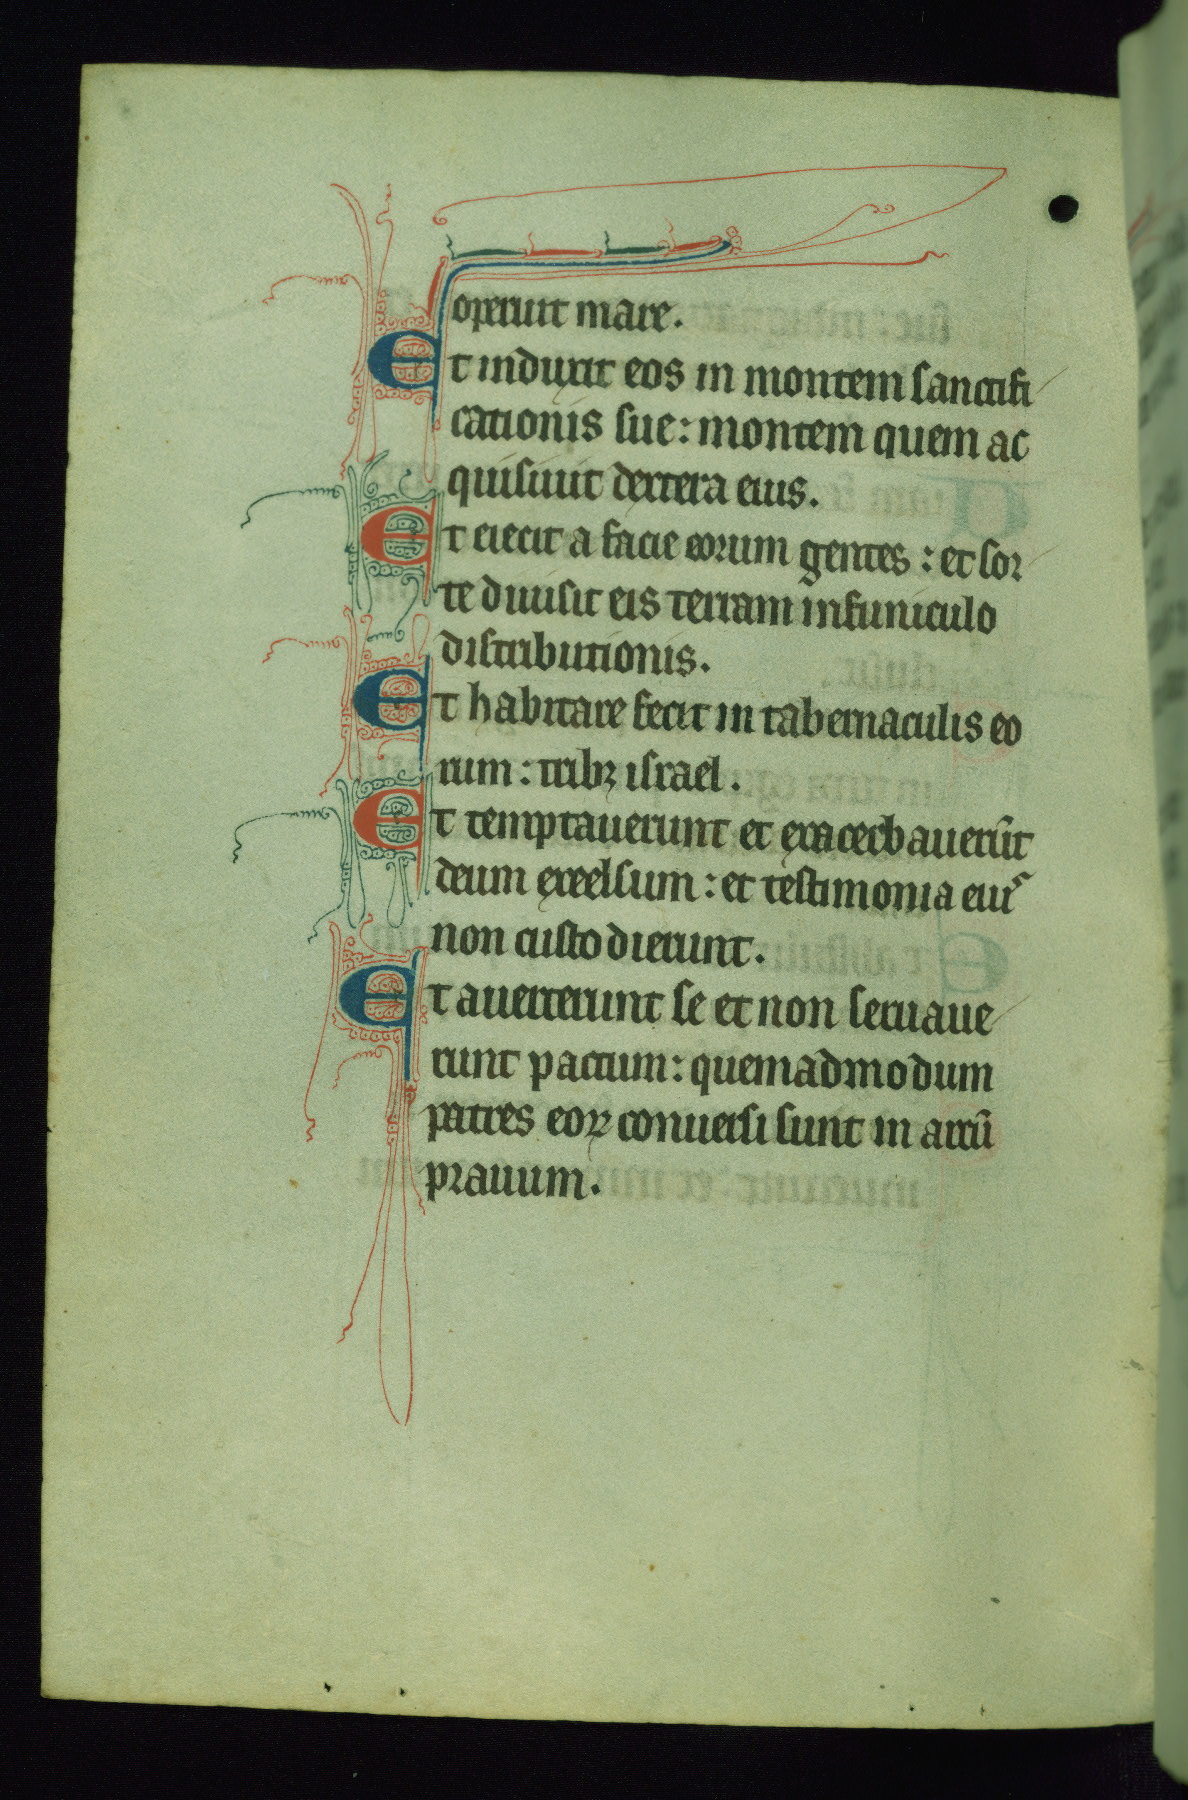 operuit mare.
Et induxit eos in montem sanctifi
cationis sue: montem quem ac
quisiuit dextera eius.
Et eiecit a facie eorum gentes: et sor
te diuisit eis terram in funiculo
distributionis.
Et habitare fecit in tabernaculis eo
rum: tribꝫ israel.
Et temptauerunt et exacerbauerūt
deum excelsum: et testimonia eiuˢ
non custodierunt.
Et auerterunt se et non seruaue
runt pactum: quemadmodum
patres eoꝝ conuersi sunt in arcū
prauum.